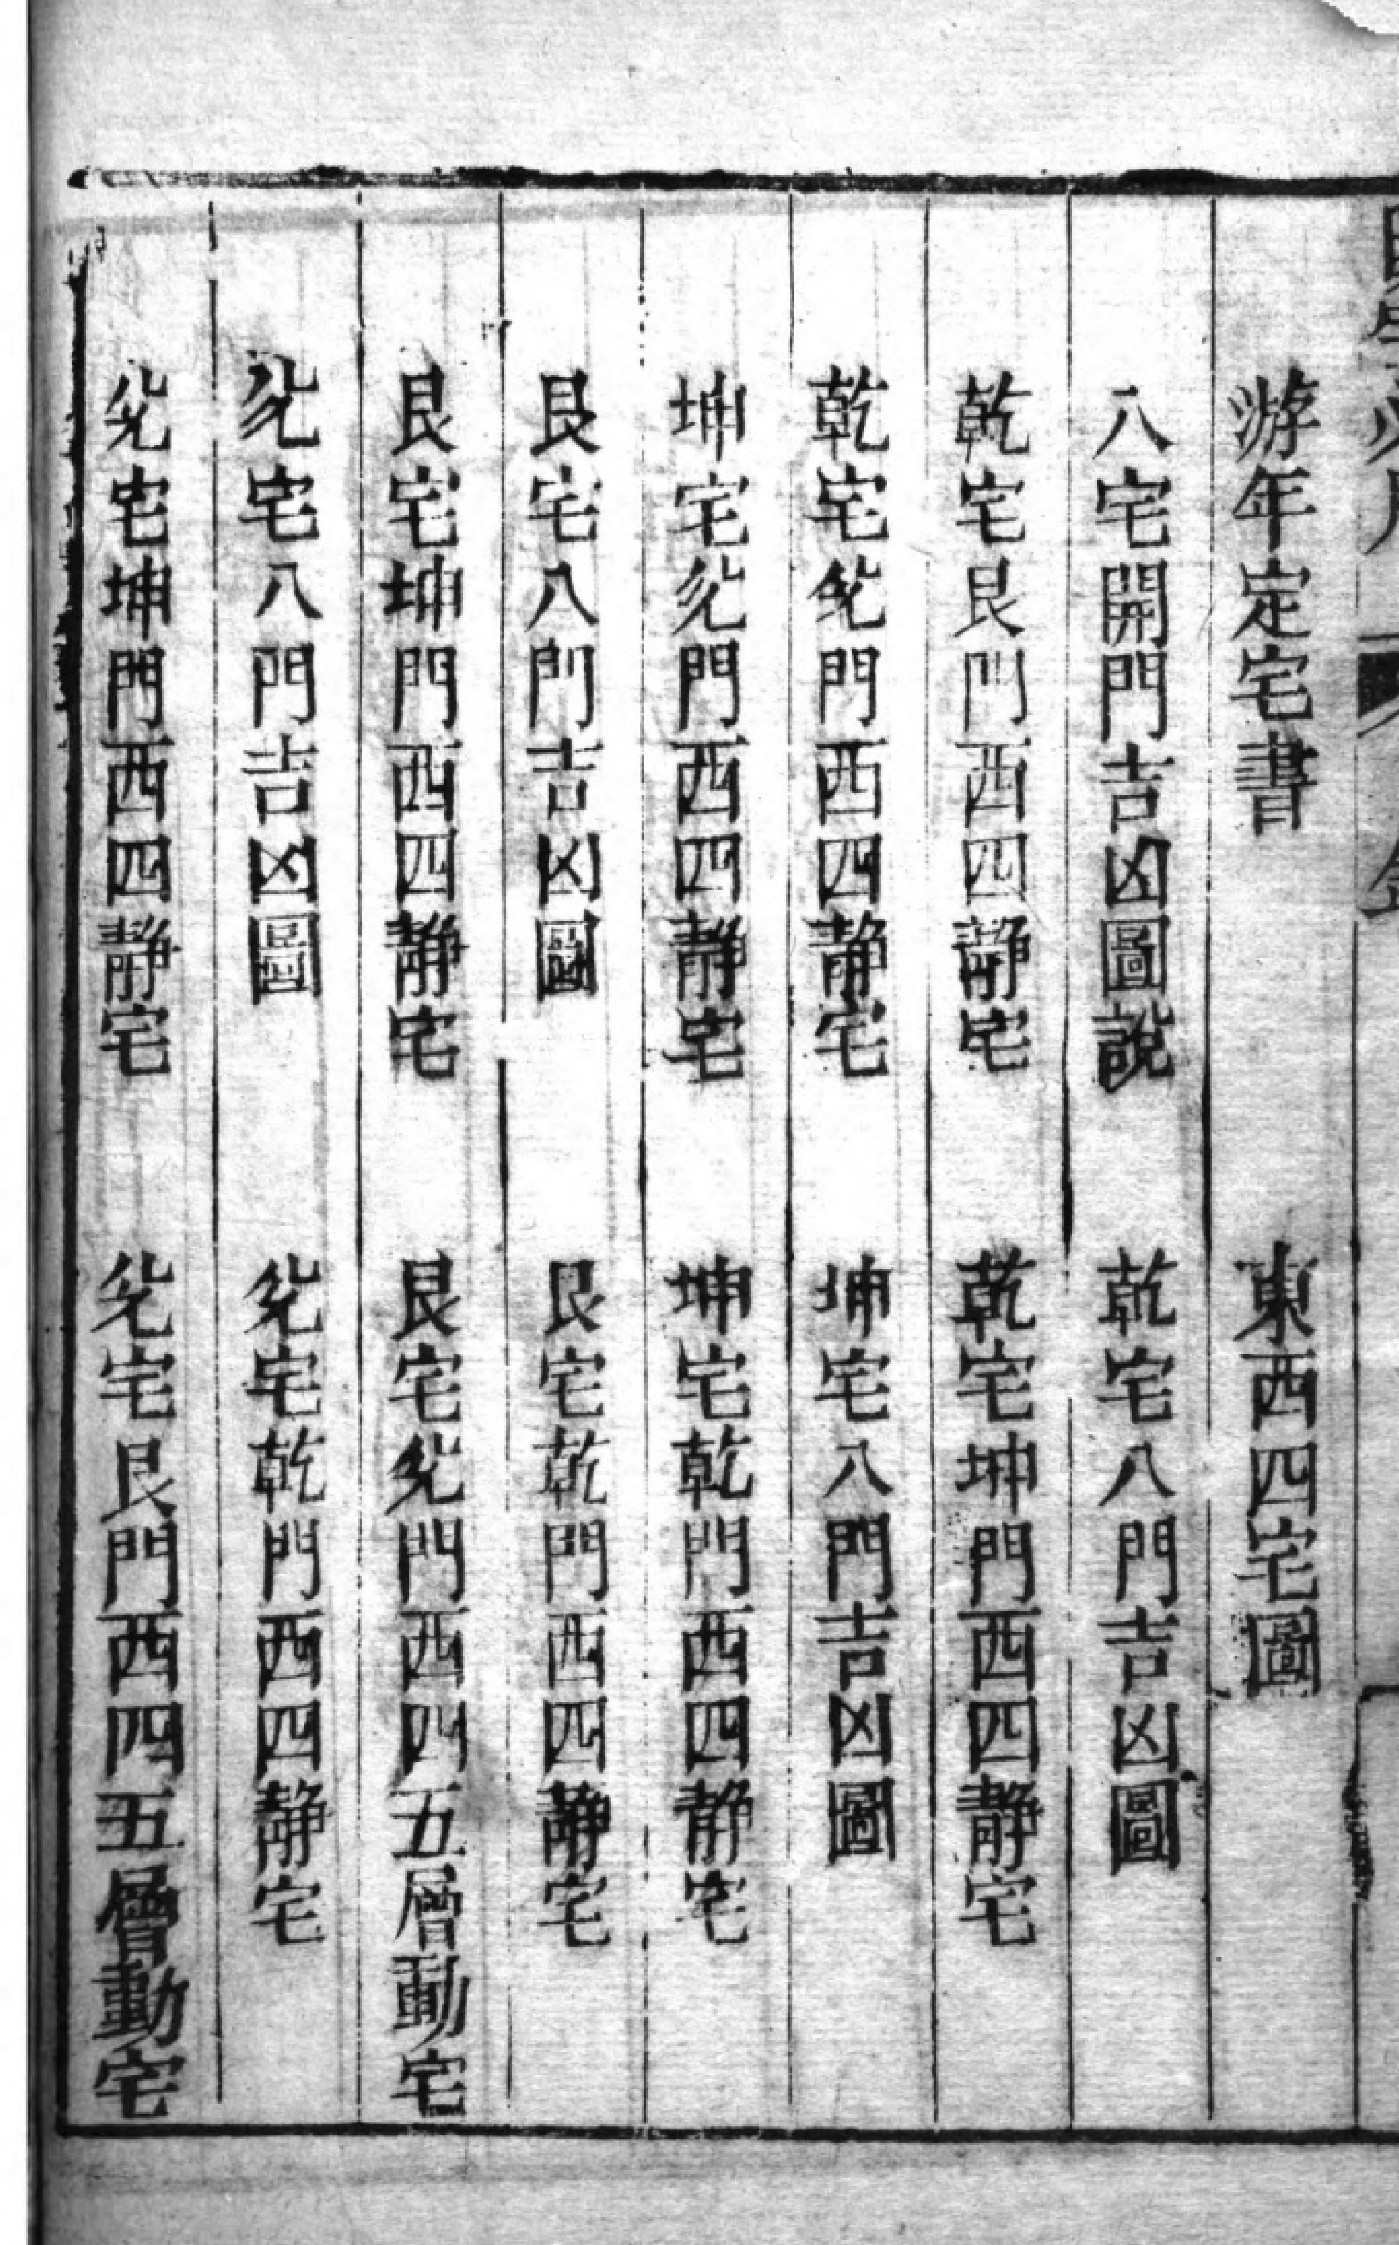 游年定宅書　東西四宅圖
八宅開門吉凶圖說　乾宅八門吉凶圖
乾宅艮門西四靜宅　乾宅坤門西四靜宅
乾宅兊門西四靜宅　坤宅八門吉凶圖
坤宅兊門西四靜宅　坤宅乾門西四静宅
艮宅八門吉凶圖　艮宅乾門西四静宅
艮宅坤門西四靜宅　艮宅兊門西四五層動宅
兊宅八門吉凶圖　兊宅乾門西四静宅
兊宅坤門西四靜宅　兊宅艮門西四五層動宅